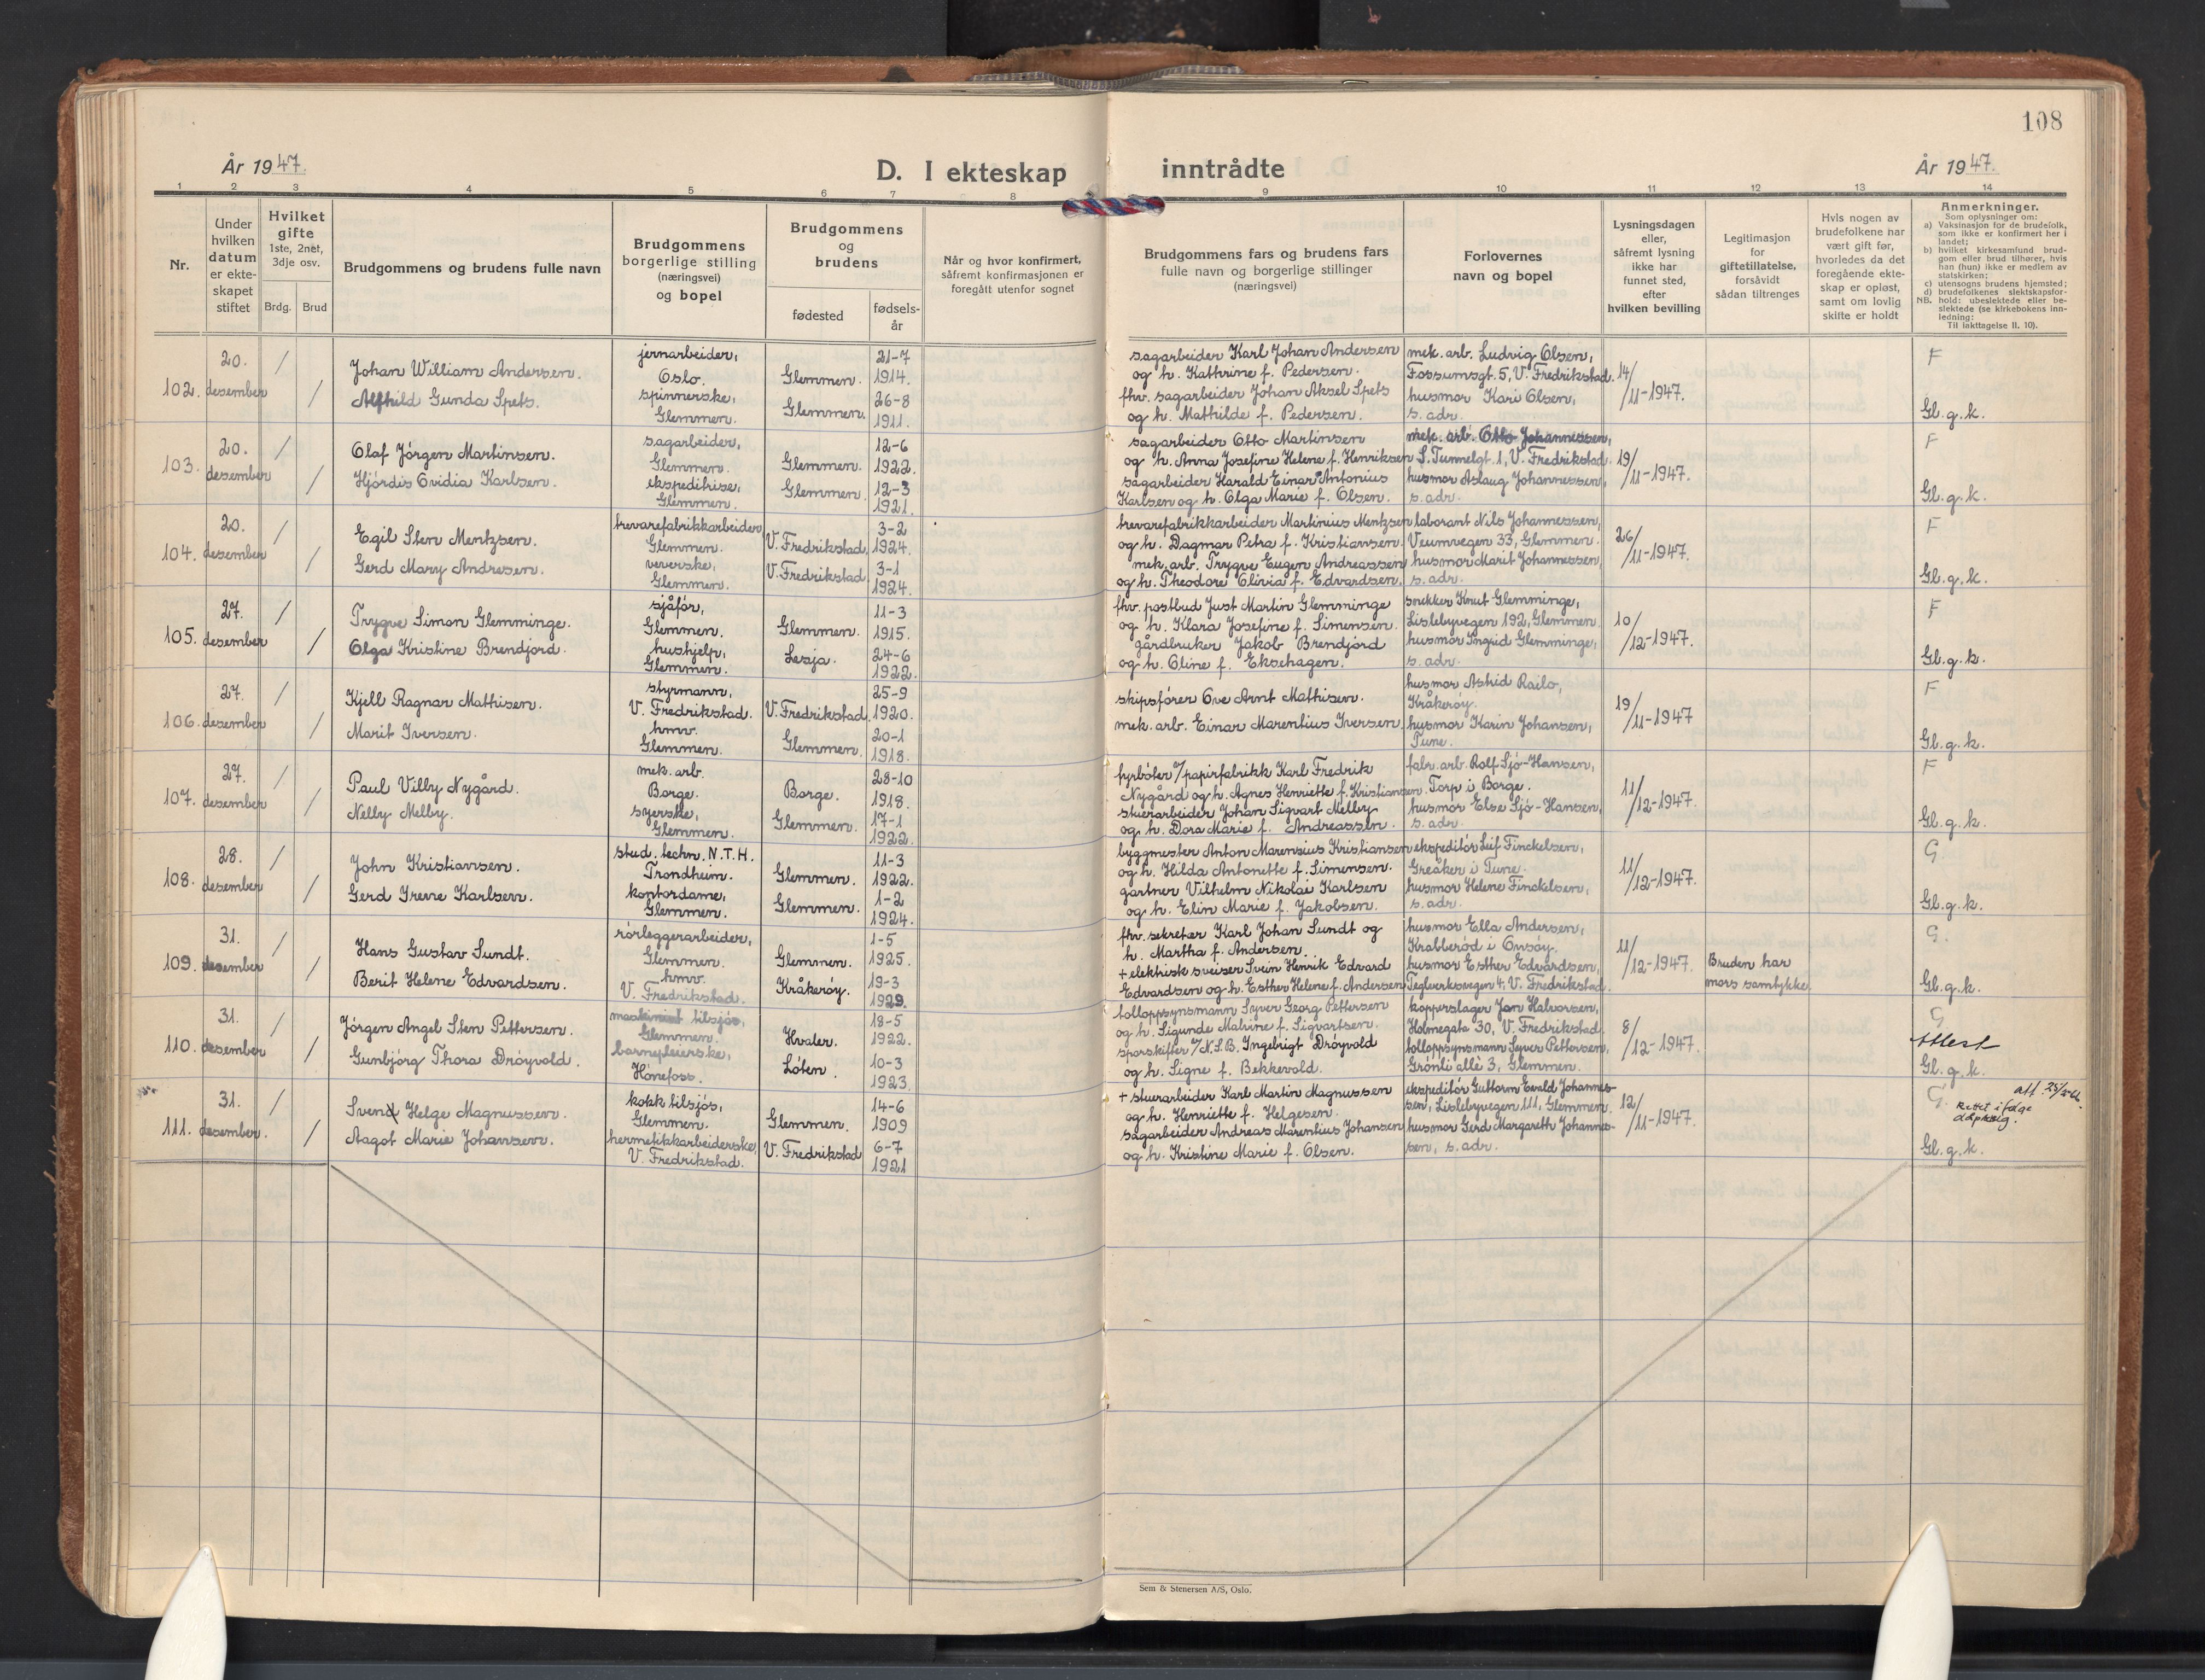 108
År 1947.
D. I ekteskap inntrådte
År 1947.
1 2 3 4 5 6 7 8 9 10 11 12 13 14
Nr.
Under hvilken datum er ekteskapet stiftet
Hvilket gifte 1ste, 2net, 3dje osv.
Brdg. Brud
Brudgommens og brudens fulle navn
Brudgommens borgerlige stilling (næringsvei) og bopel
Brudgommens og brudens
fødested
fødsels-år
Når og hvor konfirmert, såfremt konfirmasjonen er foregått utenfor sognet
Brudgommens fars og brudens fars fulle navn og borgerlige stillinger (næringsvei)
Forlovernes navn og bopel
Lysningsdagen eller, såfremt lysning ikke har funnet sted, efter hvilken bevilling
Legitimasjon for giftetillatelse, forsåvidt sådan tiltrenges
Hvis nogen av brudefolkene har vært gift før, hvorledes da det foregående ekteskap er opløst, samt om lovlig skifte er holdt
Anmerkninger.
Som oplysninger om:
a) Vaksinasjon for de brudefolk, som ikke er konfirmert her i landet;
b) hvilket kirkesamfund brudgom eller brud tilhører, hvis han (hun) ikke er medlem av statskirken;
c) utensogns brudens hjemsted;
d) brudefolkenes slektskapsforhold: ubeslektede eller beslektede (se kirkebokens innledning:
NB. Til iakttagelse II, 10).
102. 20. desember / /
Johan William Andersen.
Alfhild Gunda Spets.
jernarbeider,
Oslo.
spinnerske,
Glemmen.
Glemmen. 21-7 1914.
Glemmen. 26-8 1911.
sagarbeider Karl Johan Andersen
og h. Kathrine f. Pedersen.
fhv. sagarbeider Johan Aksel Spets
og h. Mathilde f. Pedersen.
mek. arb. Ludvig Olsen,
Fossumsgt. 5, V. Fredrikstad.
husmor Kari Olsen,
s. adr.
14/11-1947.
F
Gl. g. k.
103. 20. desember / /
Olaf Jørgen Martinsen.
Hjørdis Ovidia Karlsen.
sagarbeider,
Glemmen.
ekspeditrise,
Glemmen.
Glemmen. 12-6 1922.
Glemmen. 12-3 1921.
sagarbeider Otto Martinsen
og h. Anna Josefine Helene f. Henriksen
sagarbeider Harald Einar Antonius
Karlsen og h. Olga Marie f. Olsen.
mek. arb. Otto Johannessen,
S. Tunnelgt. 1, V. Fredrikstad.
husmor Aslaug Johannessen,
s. adr.
19/11-1947.
F
Gl. g. k.
104. 20. desember / /
Egil Sten Mentzsen.
Gerd Mary Andresen.
trevarefabrikkarbeider,
Glemmen.
veverske,
Glemmen.
V. Fredrikstad. 3-2 1924.
V. Fredrikstad 3-1 1924.
trevarefabrikkarbeider Martinius Mentzsen
og h. Dagmar Petra f. Kristiansen.
mek. arb. Trygve Eugen Andreassen
og h. Theodore Olivia f. Edvardsen.
laborant Nils Johannessen,
Veumvegen 33, Glemmen.
husmor Marit Johannessen,
s. adr.
26/11-1947.
F
Gl. g. k.
105. 27. desember / /
Trygve Simon Glemminge.
Olga Kristine Brendjord.
sjåfør,
Glemmen.
hushjelp,
Glemmen.
Glemmen. 11-3 1915.
Lesja. 24-6 1922.
fhv. postbud Just Martin Glemminge
og h. Klara Josefine f. Simensen.
gårdbruker Jakob Brendjord
og h. Oline f. Ekrehagen.
snekker Knut Glemminge,
Lislebyvegen 192, Glemmen.
husmor Ingrid Glemminge,
s. adr.
10/12-1947.
F
Gl. g. k.
106. 27. desember / /
Kjell Ragnar Mathisen.
Marit Iversen.
styrmann,
V. Fredrikstad.
hmv.
Glemmen.
V. Fredrikstad. 25-9 1920.
Glemmen. 20-1 1918.
skipsfører Ove Arnt Mathisen.
mek. arb. Einar Marentius Iversen.
husmor Astrid Railo,
Kråkerøy.
husmor Karin Johansen,
Tune.
19/11-1947
F
Gl. g. k.
107. 27. desember / /
Paul Villy Nygård.
Nelly Melby.
mek. arb.
Borge.
syerske,
Glemmen.
Borge. 28-10 1918.
Glemmen. 17-1 1922.
fyrbøter v/papirfabrikk Karl Fredrik
Nygård og h. Agnes Henriette f. Kristiansen.
stuerarbeider Johan Sigvart Melby
og h. Dora Marie f. Andreassen.
fabr. arb. Rolf Sjø-Hansen,
Torp i Borge.
husmor Else Sjø-Hansen,
s. adr.
11/12-1947.
F
Gl. g. k.
108. 28. desember / /
John Kristiansen.
Gerd Irene Karlsen.
stud. techn. N.T.H.
Trondheim.
kontordame,
Glemmen.
Glemmen. 11-3 1922.
Glemmen. 1-2 1924.
byggmester Anton Marensius Kristiansen
og h. Hilda Antonette f. Simensen.
gartner Vilhelm Nikolai Karlsen
og h. Elin Marie f. Jakobsen.
ekspeditør Leif Finckelsen,
Greåker i Tune.
husmor Helene Finckelsen,
s. adr.
11/12-1947.
G
Gl. g. k.
109. 31. desember / /
Hans Gustav Sundt.
Berit Helene Edvardsen.
rørleggerarbeider,
Glemmen.
hmv.
V. Fredrikstad.
Glemmen. 1-5 1925.
Kråkerøy. 19-3 1929.
fhv. sekretær Karl Johan Sundt og
h. Martha f. Andersen.
+ elektrisk sveiser Svein Henrik Edvard
Edvardsen og h. Esther Helene f. Andersen
husmor Ella Andersen,
Krabberød i Onsøy.
husmor Esther Edvardsen,
Teglverksvegen 4, V. Fredrikstad.
11/12-1947.
Bruden har
mors samtykke.
G.
Gl. g. k.
110. 31. desember / /
Jørgen Angel Sten Pettersen.
Gunbjørg Thora Drøyvold.
maskinist tilsjøs,
Glemmen.
barnepleierske,
Hønefoss.
Hvaler. 18-5 1922.
Løten. 10-3 1923.
tolloppsynsmann Syver Georg Pettersen
og h. Sigunde Malvine f. Sigvartsen.
sporskifter v/N.S.B. Ingebrigt Drøyvold
og h. Signe f. Bekkevold.
kopperslager Jan Halvorsen,
Holmegata 30, V. Fredrikstad.
tolloppsynsmann Syver Pettersen,
Grønli allè 3, Glemmen.
8/12-1947.
G
Attest
Gl. g. k.
111. 31. desember. / /
Svend Helge Magnussen.
Aagot Marie Johansen.
kokk tilsjøs,
Glemmen.
hermetikkarbeiderske,
V. Fredrikstad.
Glemmen. 14-6 1909
V. Fredrikstad 6-7 1921
+ stuerarbeider Karl Martin Magnussen
og h. Henriette f. Helgesen.
sagarbeider Andreas Marentius Johansen
og h. Kristine Marie f. Olsen.
ekspeditør Guttorm Evald Johannes-
sen, Lislebyvegen 111, Glemmen.
husmor Gerd Margareth Johannes-
sen, s. adr.
12/11-1947.
G
Rettet ifølge
Gl. g. k.
Sem & Stenersen A/S, Oslo.